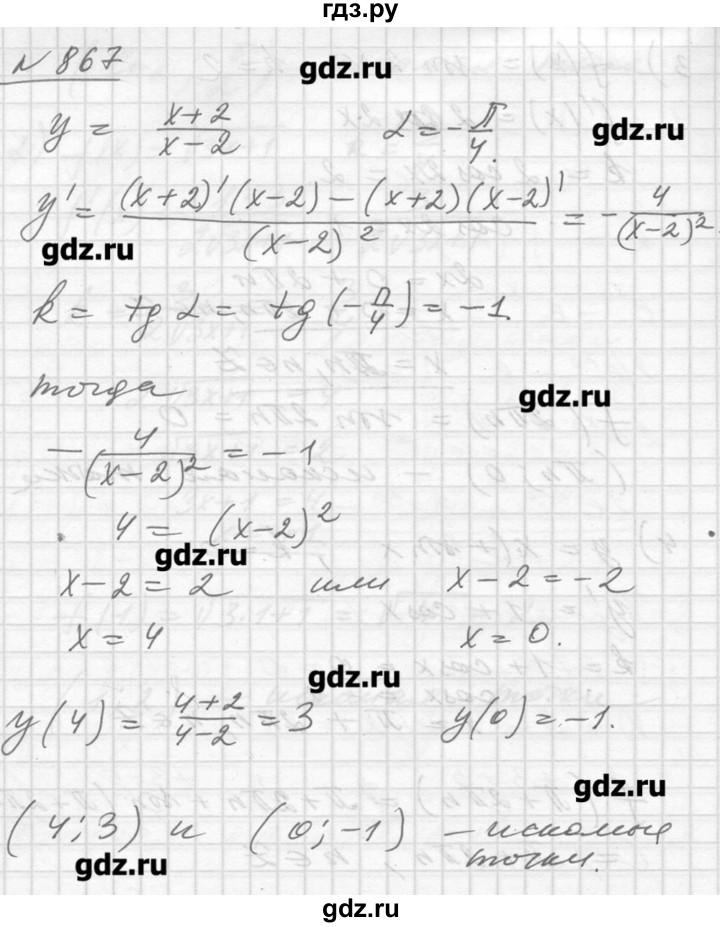 гдз.ру
N 867
gdz.ru
y = (x+2)/(x-2)   α = -π/4.
gdz.ru
y' = ((x+2)'(x-2) - (x+2)(x-2)')/(x-2)² = - 4/(x-2)².
gdz.ru
k = tg α = tg(-π/4) = -1.
тогда
gdz.ru
- 4/(x-2)² = -1
4 = (x-2)²
gdz.ru
x-2 = 2 или x-2 = -2
x = 4   x = 0.
gdz.ru
y(4) = (4+2)/(4-2) = 3   y(0) = -1.
gdz.ru
(4; 3) и (0; -1) - искомые
точки.
gdz.ru
gdz.ru